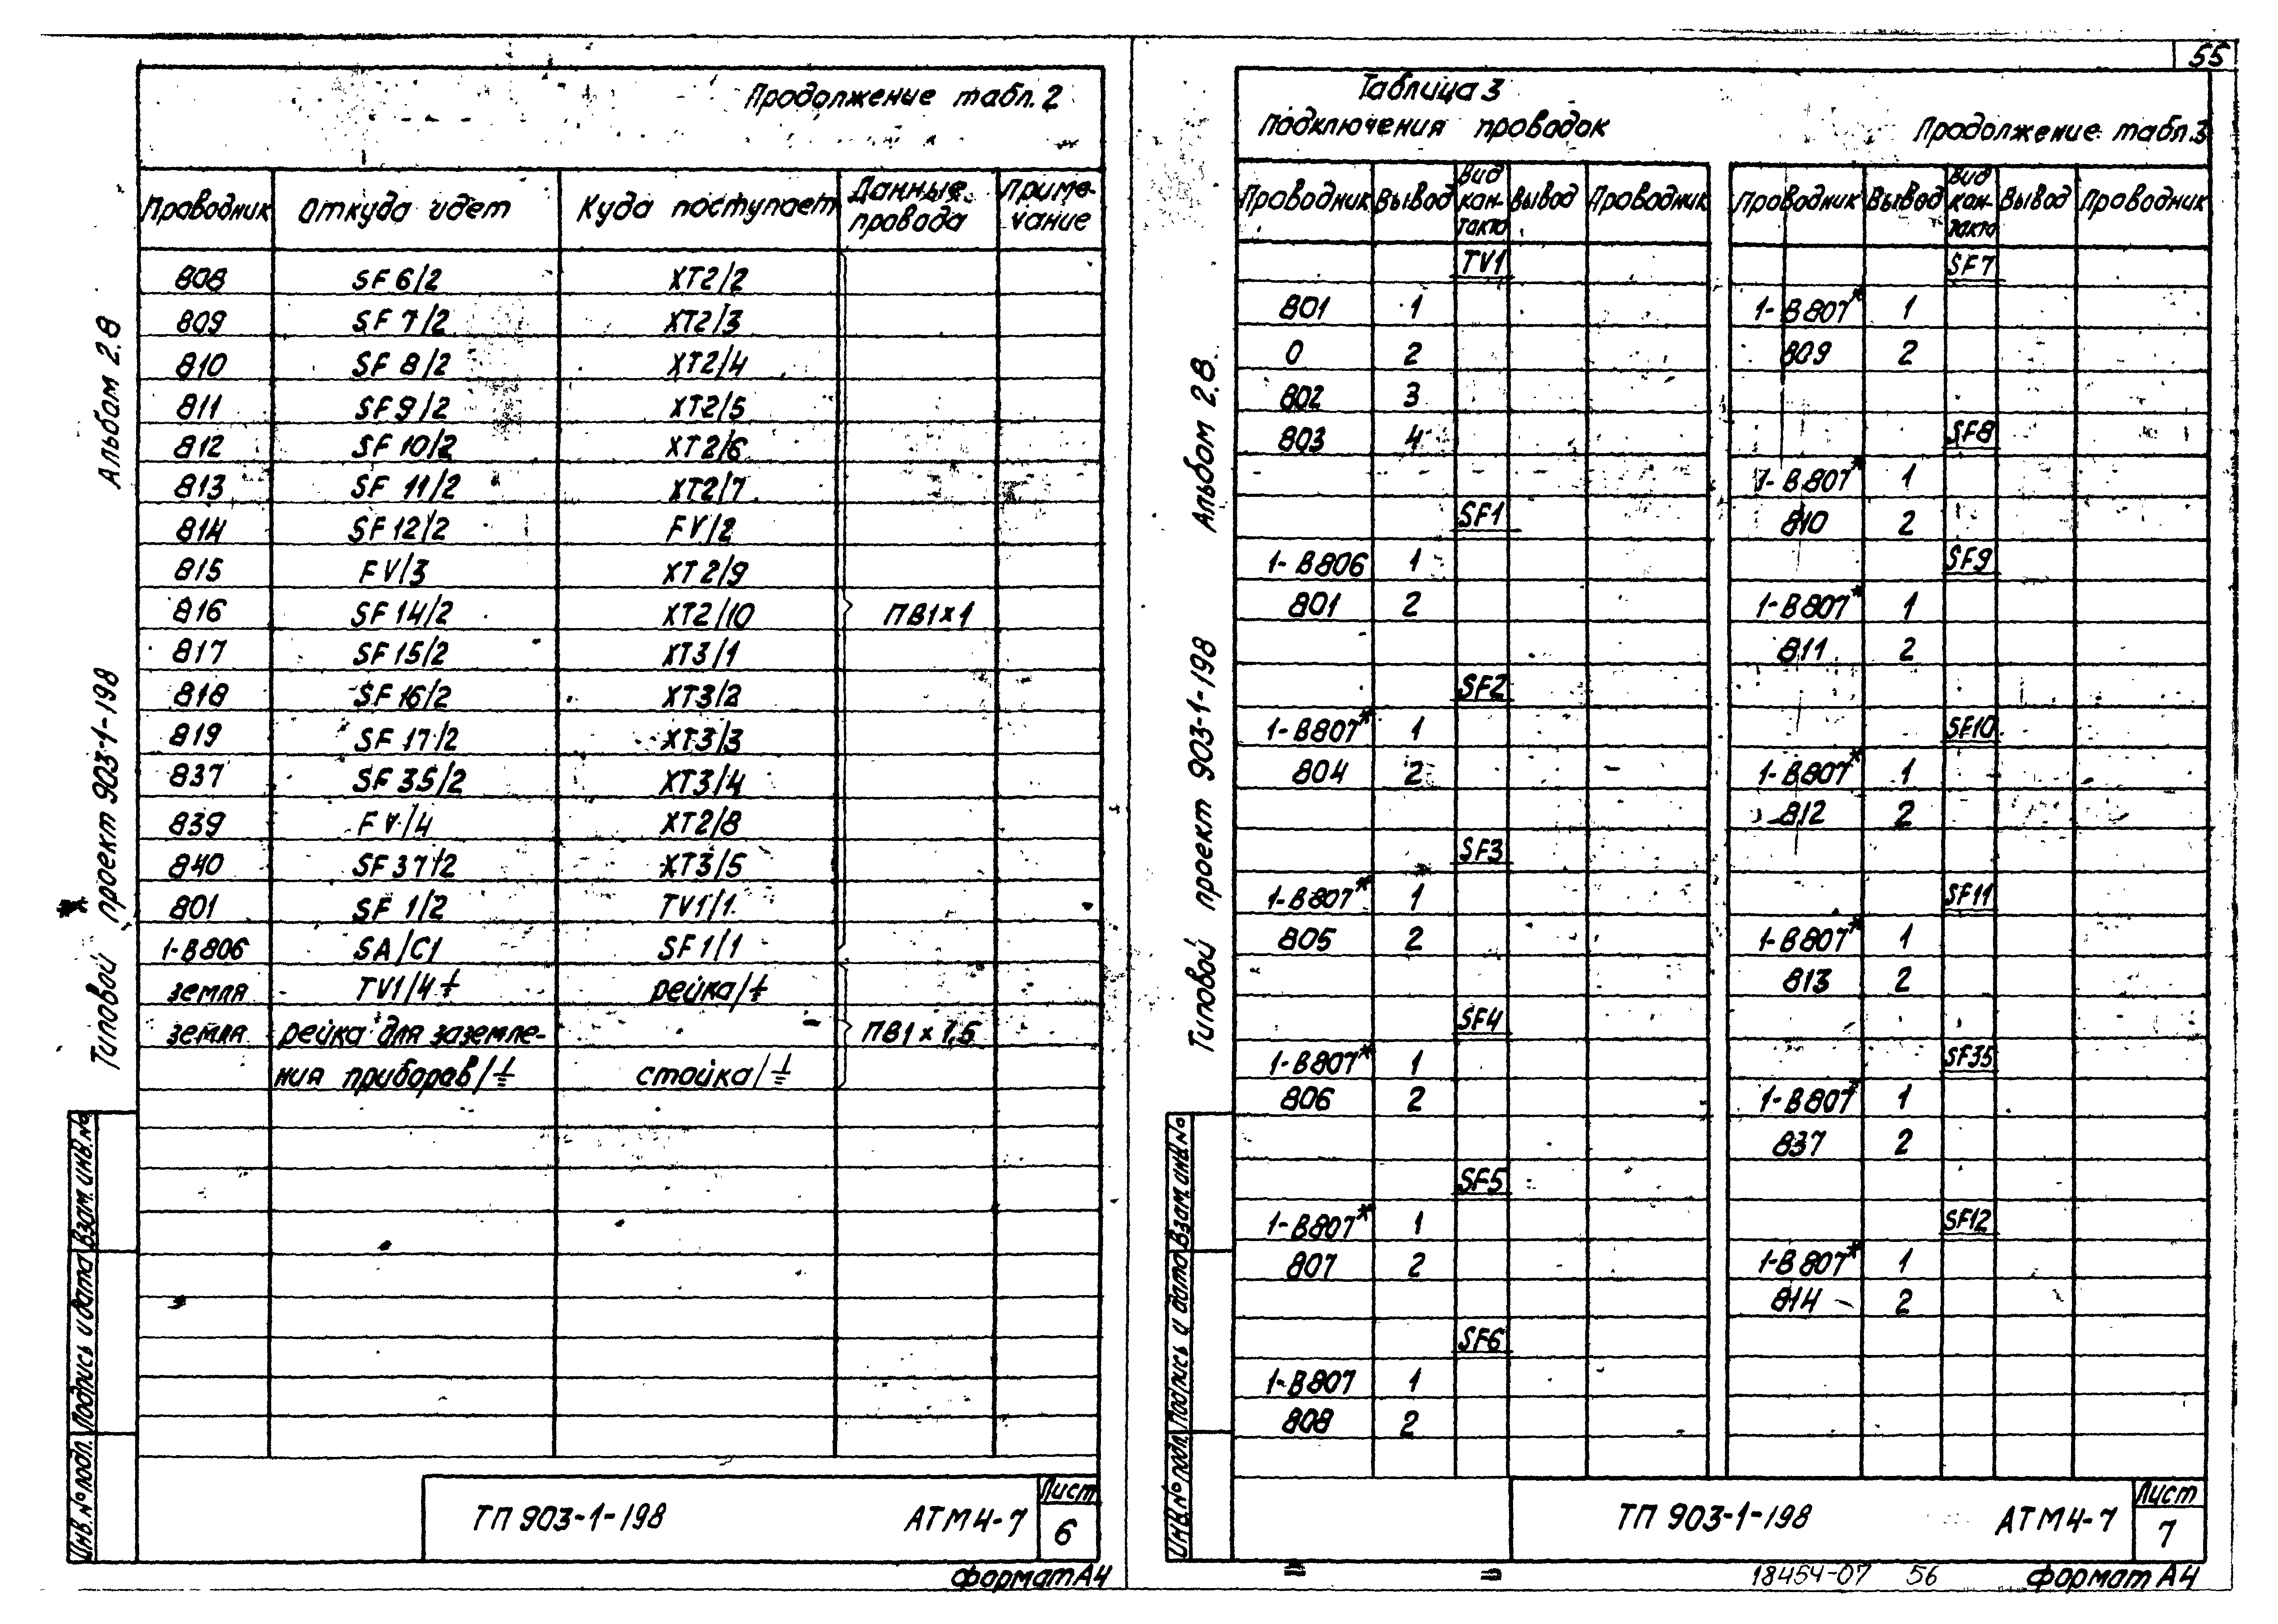 55
Продолжение табл. 2
Проводник Откуда идет Куда поступает Данные провода Примечание
808 SF 6/2 XT2/2
809 SF 7/2 XT2/3
810 SF 8/2 XT2/4
811 SF 9/2 XT2/5
812 SF 10/2 XT2/6
813 SF 11/2 XT2/7
814 SF 12/2 FV/2
815 FV/3 XT2/9
816 SF 14/2 XT2/10 ПВ1×1
817 SF 15/2 XT3/1
818 SF 16/2 XT3/2
819 SF 17/2 XT3/3
837 SF 35/2 XT3/4
839 FV/4 XT2/8
840 SF 37/2 XT3/5
801 SF 1/2 TV1/1
1-В806 SA/C1 SF 1/1
земля TV1/4 ⏚ рейка/⏚
земля рейка для заземле- ПВ1×1,5
ния приборов/⏚ стойка/⏚
Альбом 2.8
Типовой проект 903-1-198
Инв. № подл. Подпись и дата Взам. инв. №
ТП 903-1-198 АТМ4-7 Лист 6
Формат А4
Таблица 3
подключения проводок
Проводник Вывод Вид контакта Вывод Проводник
TV1
801 1
0 2
802 3
803 4
SF1
1-В806 1
801 2
SF2
1-В807* 1
804 2
SF3
1-В807* 1
805 2
SF4
1-В807* 1
806 2
SF5
1-В807* 1
807 2
SF6
1-В807 1
808 2
Продолжение табл. 3
Проводник Вывод Вид контакта Вывод Проводник
SF7
1-В807* 1
809 2
SF8
1-В807* 1
810 2
SF9
1-В807* 1
811 2
SF10
1-В807* 1
812 2
SF11
1-В807* 1
813 2
SF35
1-В807* 1
837 2
SF12
1-В807* 1
814 2
Альбом 2.8.
Типовой проект 903-1-198
Инв. № подл. Подпись и дата Взам. инв. №
ТП 903-1-198 АТМ4-7 Лист 7
18454-07 56 Формат А4